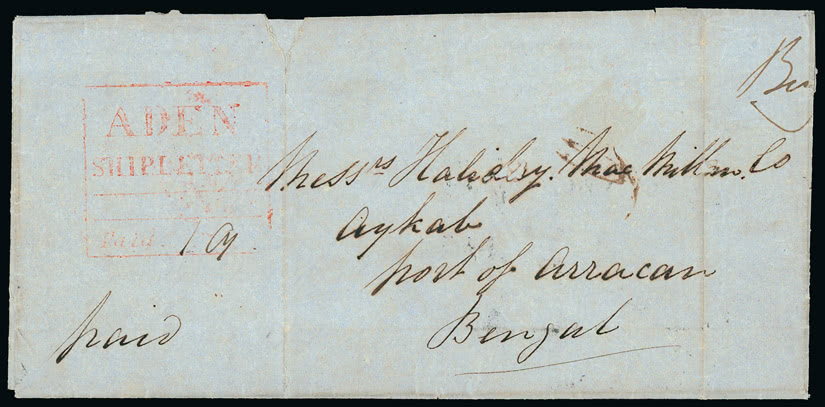 ADEN
SHIPLETTER
Paid. 1 a
paid
Messrs Haliday. Mac Millan. Co
Aykab
port of Arracan
Bengal